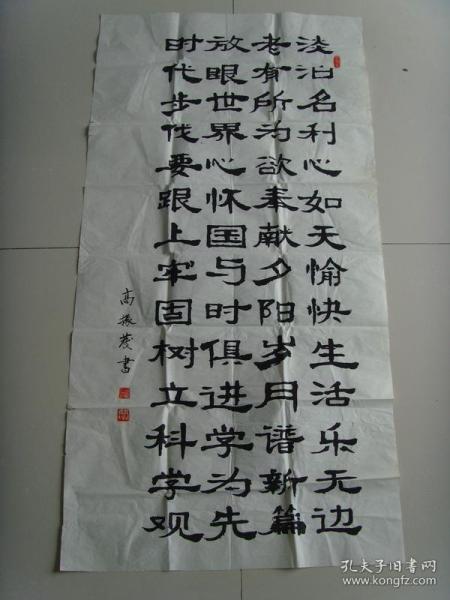 淡泊名利心如天愉快生活乐无边
老有所为欲奉献夕阳岁月谱新篇
放眼世界心怀国与时俱进学为先
时代步伐要跟上牢固树立科学观
高振 書
孔夫子旧书网
www.kongfz.com